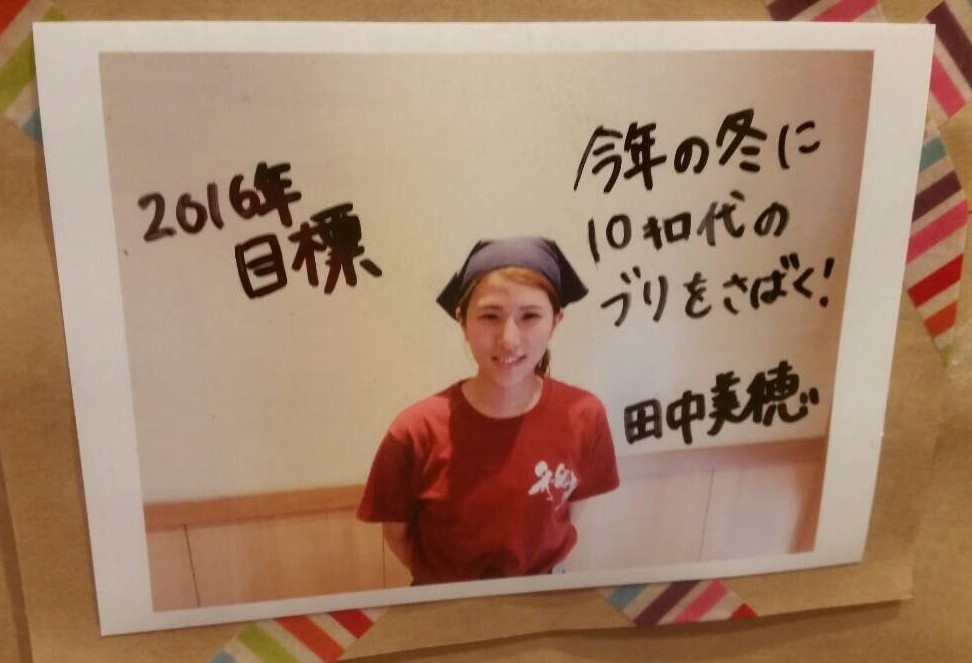 2016年
目標
今年の冬に
10キロ代の
ブリをさばく!
田中美穂